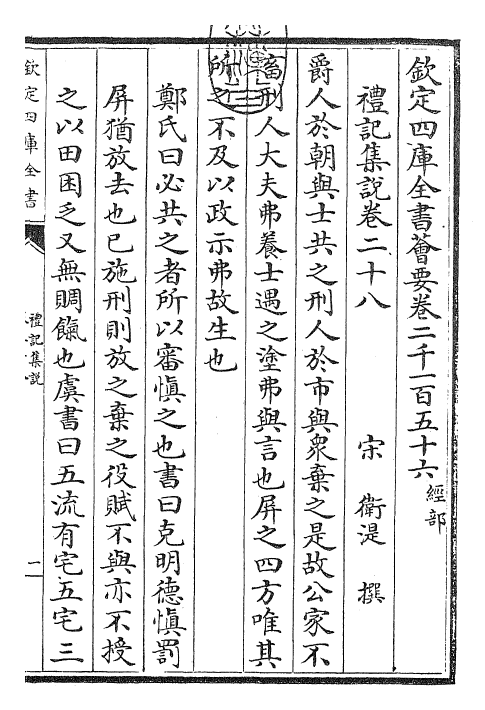 欽定四庫全書薈要卷二千一百五十六經部
禮記集說卷二十八　宋　衛湜　撰
爵人於朝與士共之刑人於市與衆棄之是故公家不
畜刑人大夫弗養士遇之塗弗與言也屏之四方唯其
所之不及以政示弗故生也
鄭氏曰必共之者所以審慎之也書曰克明德慎罰
屏猶放去也已施刑則放之棄之役賦不與亦不授
之以田困乏又無賙餼也虞書曰五流有宅五宅三
欽定四庫全書
禮記集說
一